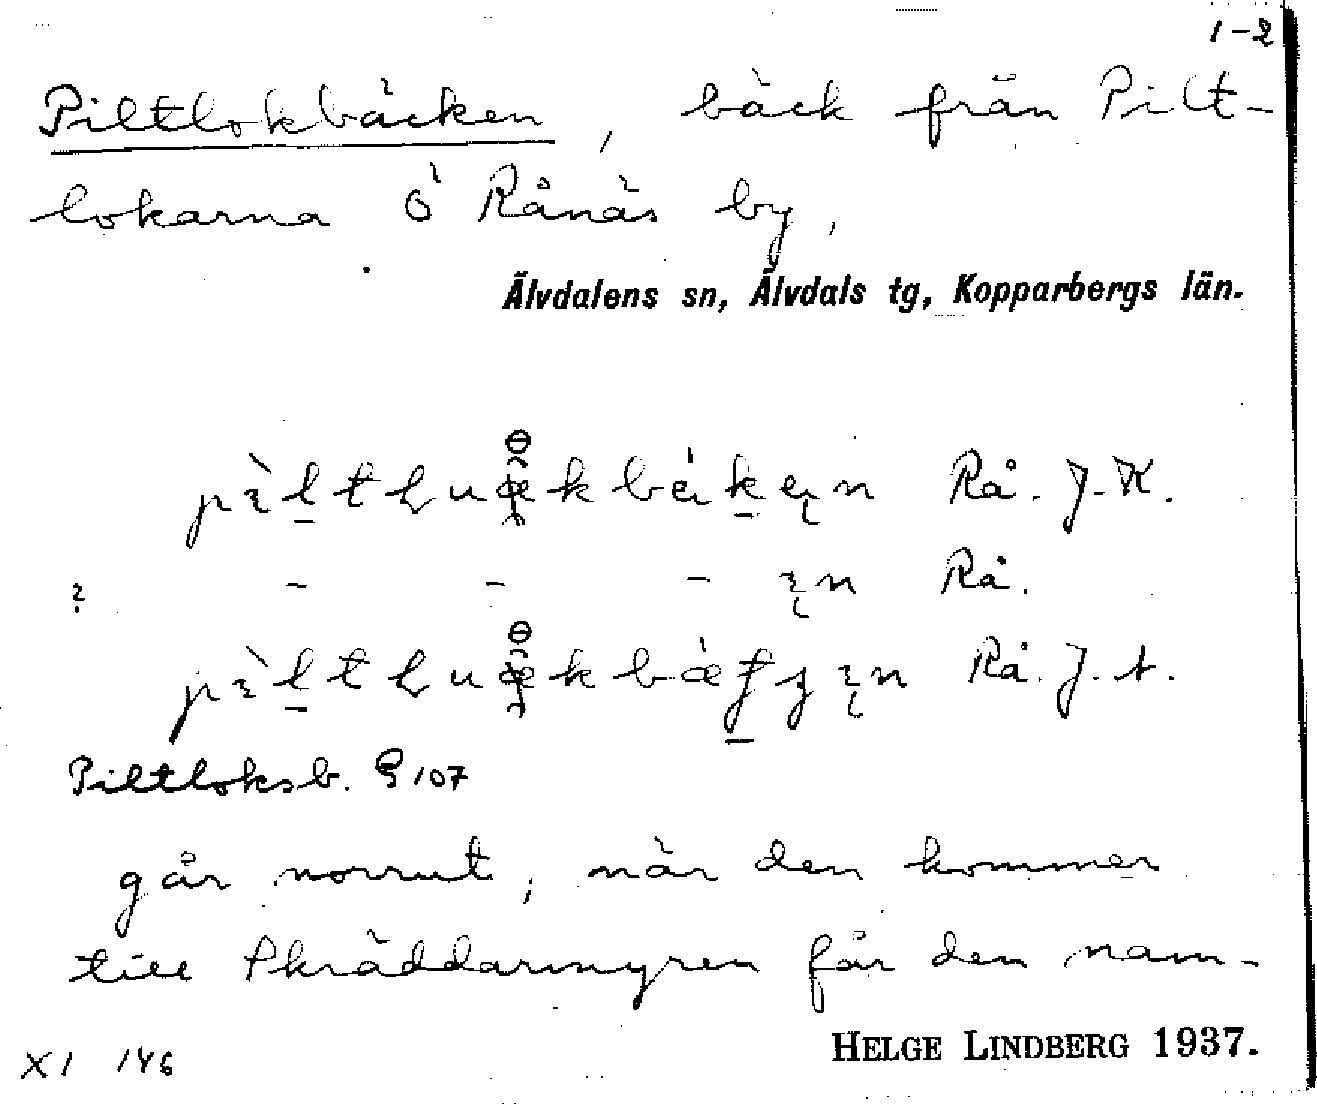 1-2
Piltlokbäcken, bäck från Pilt-
lokarna Ö Rånäs by,
Älvdalens sn, Älvdals tg, Kopparbergs län.
Rå. J.K.
? - - - Rå.
Rå. J.
Piltloksb. 107
går norrut, när den kommer
till Skräddarmyren får den nam-
HELGE LINDBERG 1937.
XI 146